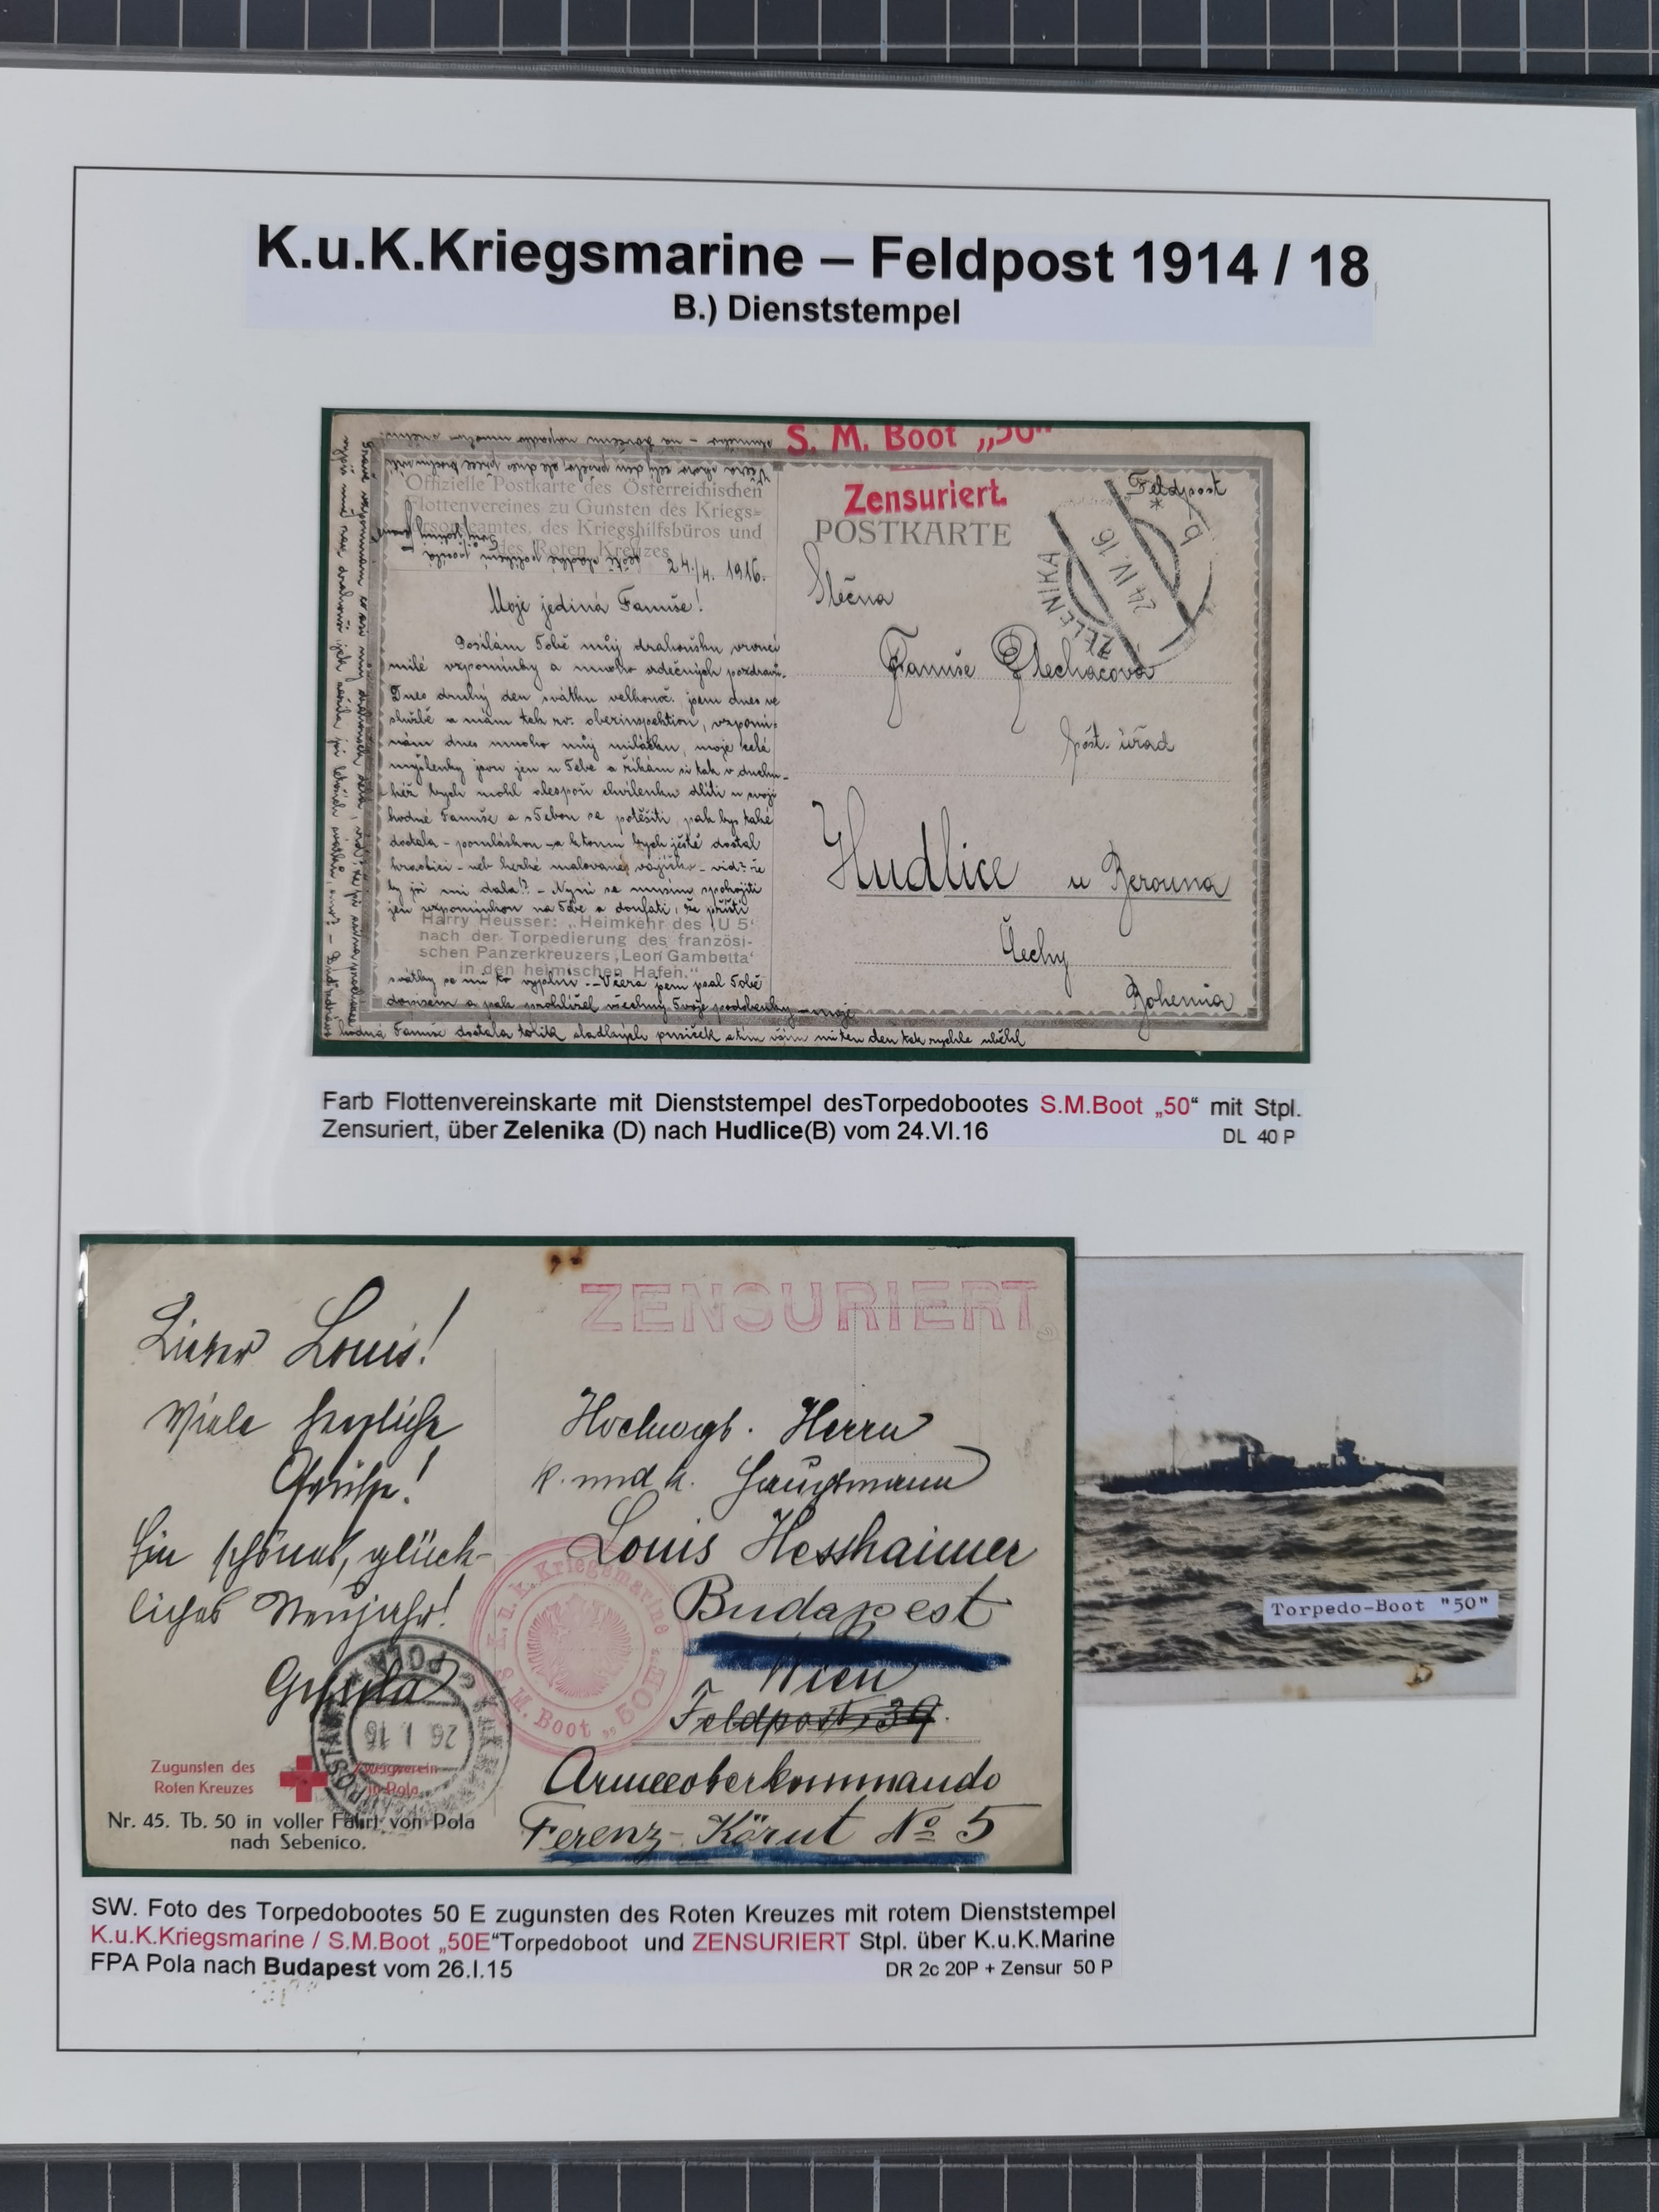 K.u.K.Kriegsmarine – Feldpost 1914 / 18
B.) Dienststempel
S. M. Boot „50"
Zensuriert.
POSTKARTE
Feldpost
ZELENIKA
24 IV. 16
b
*
Offizielle Postkarte des Österreichischen
Flottenvereines zu Gunsten des Kriegs=
amtes, des Kriegshilfsbüros und
des Roten Kreuzes
24./4. 1916.
Moje jediná Fanuše!
Posílám Tobě můj drahoušku vroucí
milé vzpomínky a mnoho srdečných pozdravů.
Dnes druhý den svátku velkonoč. jsem dnes ve
službě a mám tak zv. oberinspektion, vzpomí-
nám dnes mnoho můj miláčku, moje celé
myšlenky jsou jen u Tebe a říkám si tak v duchu
kéž bych mohl alespoň chvilenku dlíti u svojí
hodné Fanuše a s Tebou se potěšiti, pak bys také
dostala – pomlázkou – a k tomu bych ještě dostal
neb hezké malované vajíčko – viď? že
by jsi mi dala!? – Nyní se musím spokojiti
jen vzpomínkou na Tebe a doufati, že příští
Harry Heusser: „Heimkehr des ‚U 5'
nach der Torpedierung des französi-
schen Panzerkreuzers ‚Leon Gambetta'
in den heimischen Hafen."
svátky se mi to vyplní. – Včera jsem psal Tobě
dopisem a pak prohlížel všechny Tvoje podobenky – moje
hodná Fanuše dostala tolik sladkých pusiček a tím mi ten den tak rychle utekl
Slečna
Fanuše Plechačová
pošt. úřad
Hudlice u Berouna
Čechy
Bohemia
Farb Flottenvereinskarte mit Dienststempel desTorpedobootes S.M.Boot „50“ mit Stpl.
Zensuriert, über Zelenika (D) nach Hudlice(B) vom 24.VI.16
DL 40 P
ZENSURIERT
Lieber Louis!
Viele herzliche
Grüße!
Ein schönes, glück-
liches Neujahr!
Hochwgb. Herrn
k. und k. Hauptmann
Louis Hesshaimer
Budapest
Wien
Feldpost 39.
Armeeoberkommando
Ferenz-Körut No 5
K.u.k. Kriegsmarine
S. M. Boot „50E"
POLA
26 I 15
Zugunsten des
Roten Kreuzes
Zweigverein
in Pola
Nr. 45. Tb. 50 in voller Fahrt von Pola
nach Sebenico.
Torpedo-Boot "50"
SW. Foto des Torpedobootes 50 E zugunsten des Roten Kreuzes mit rotem Dienststempel
K.u.K.Kriegsmarine / S.M.Boot „50E“Torpedoboot und ZENSURIERT Stpl. über K.u.K.Marine
FPA Pola nach Budapest vom 26.I.15
DR 2c 20P + Zensur 50 P